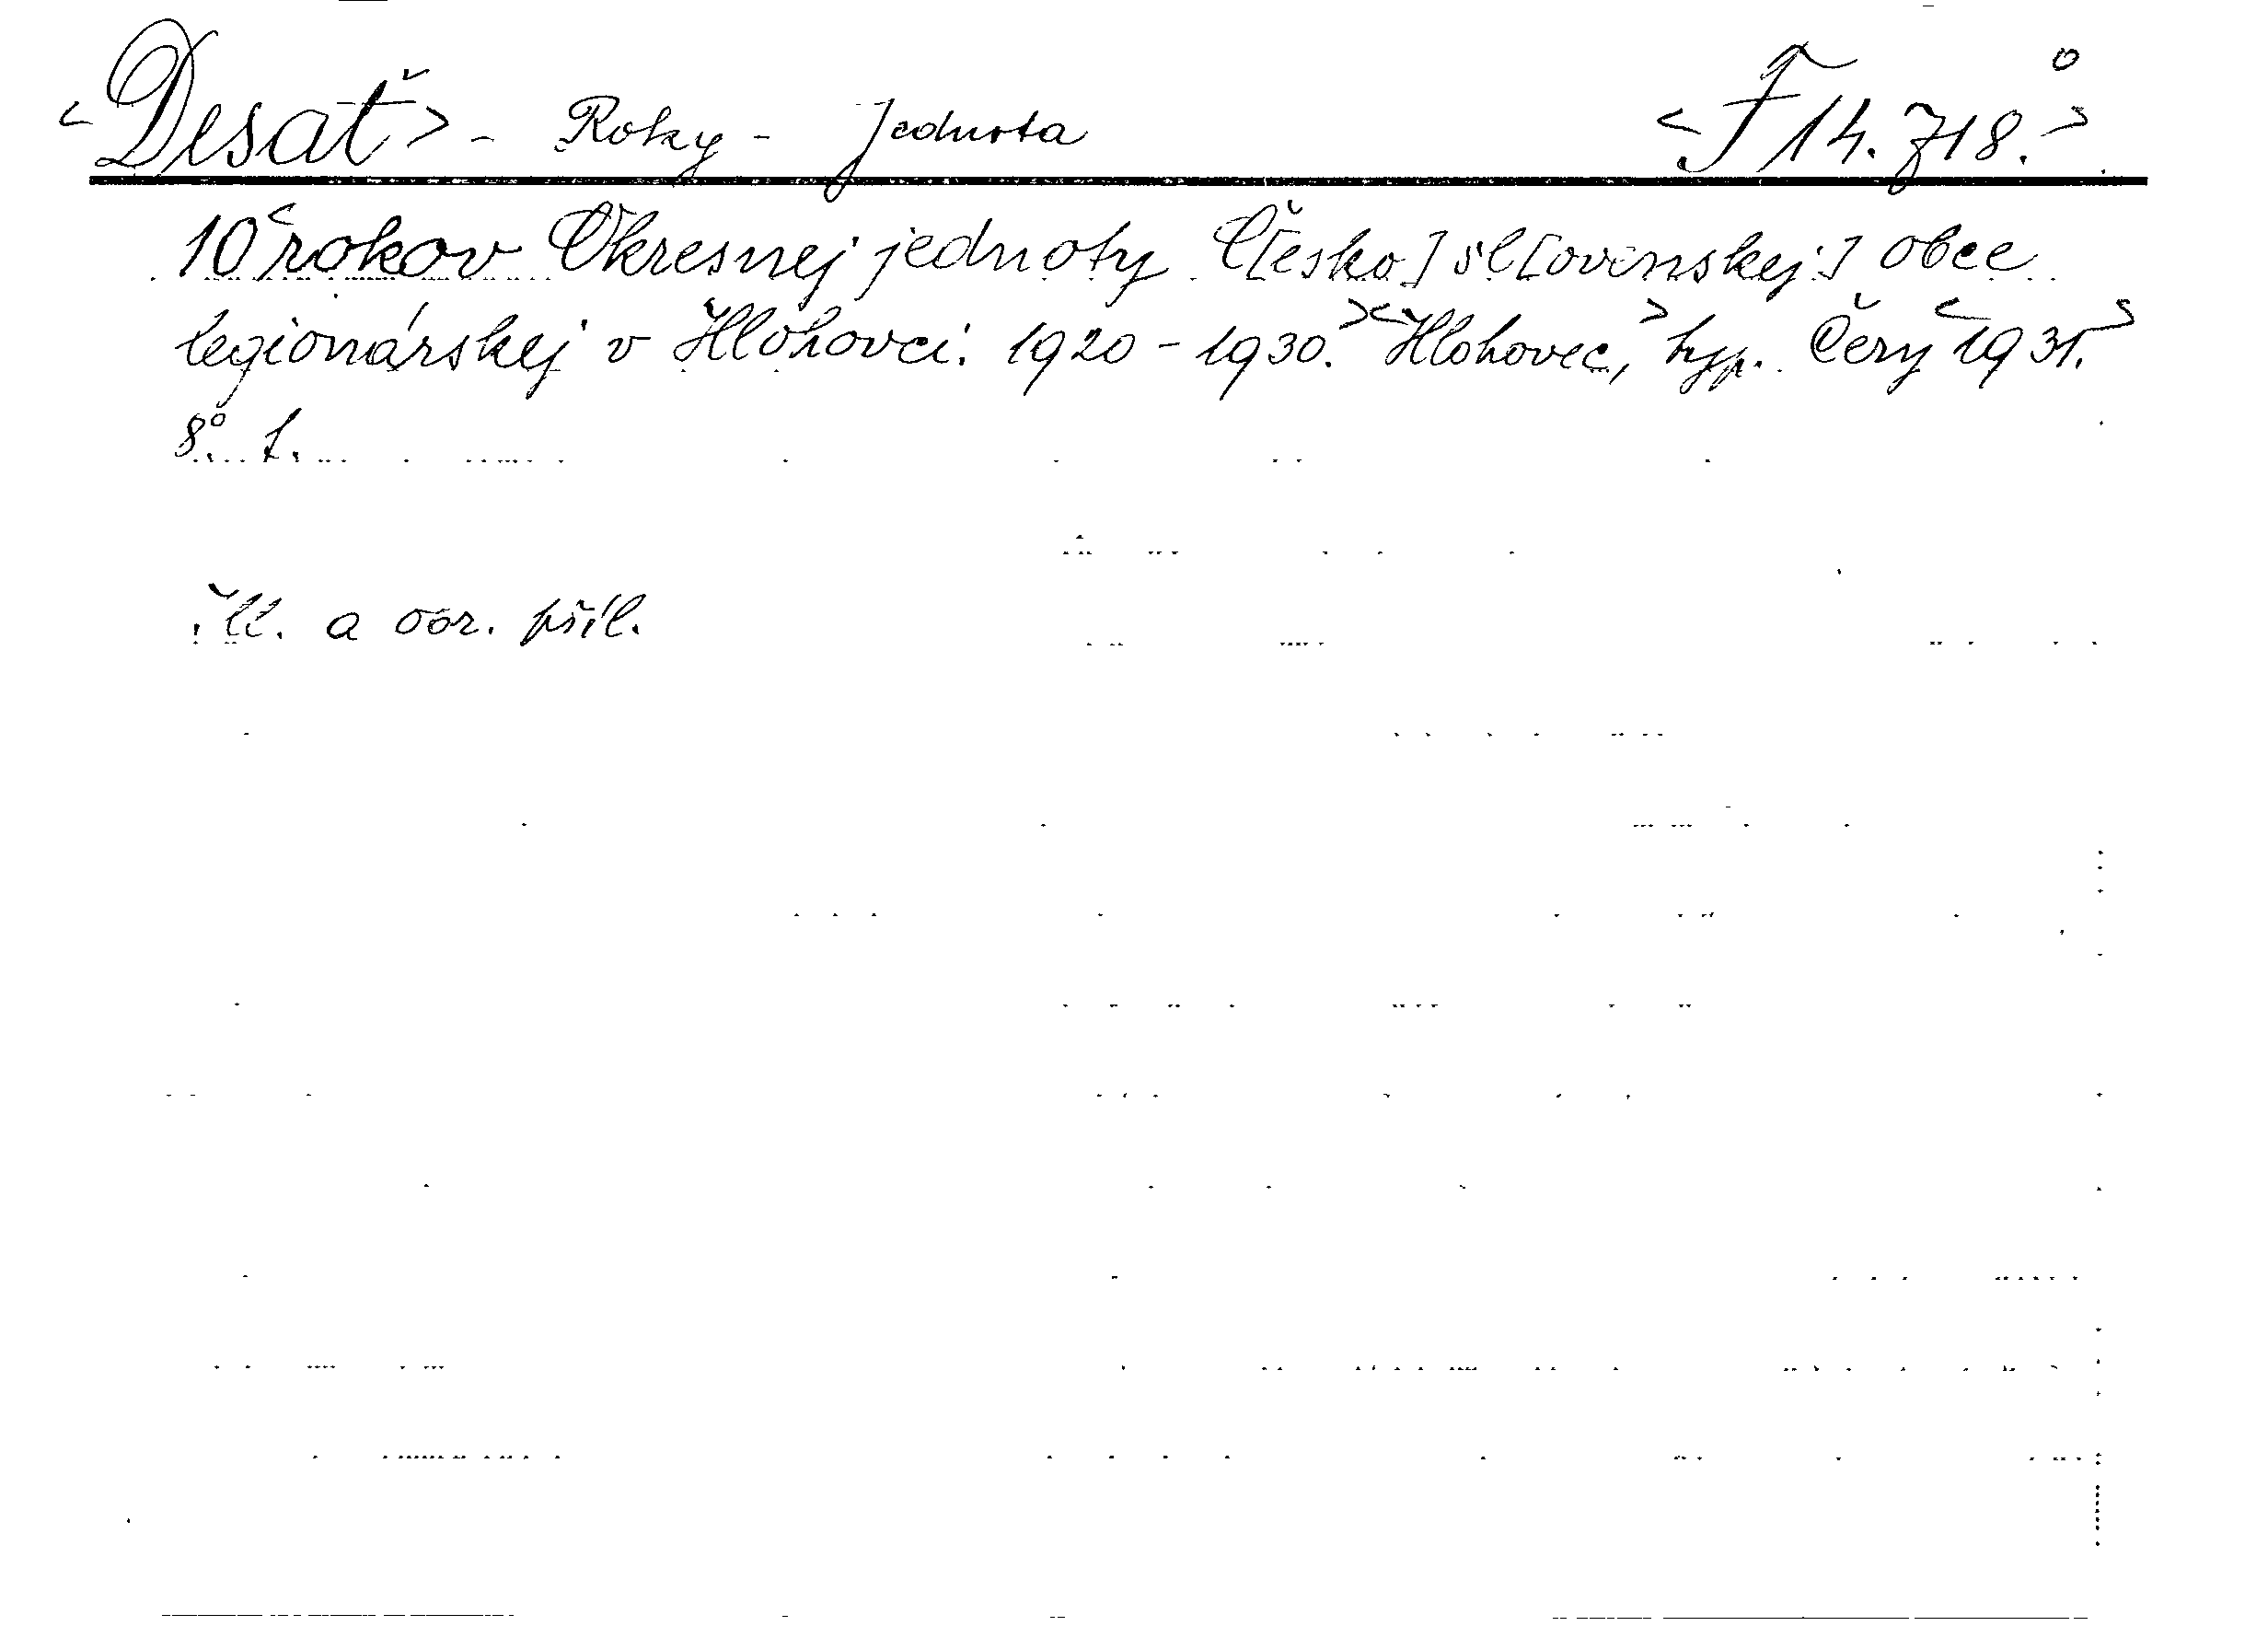 <Desať> - Roky - Jednota <F 14.718.>
10 rokov Okresnej jednoty Č[esko]sl[ovenskej] obce
legionárskej v Hlohovci. 1920-1930. Hlohovec, typ. Černý 1931.
8°.
Il. a obr. příl.